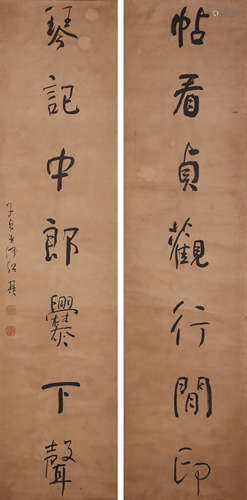 帖看貞觀行間印
琴記中郎爨下聲